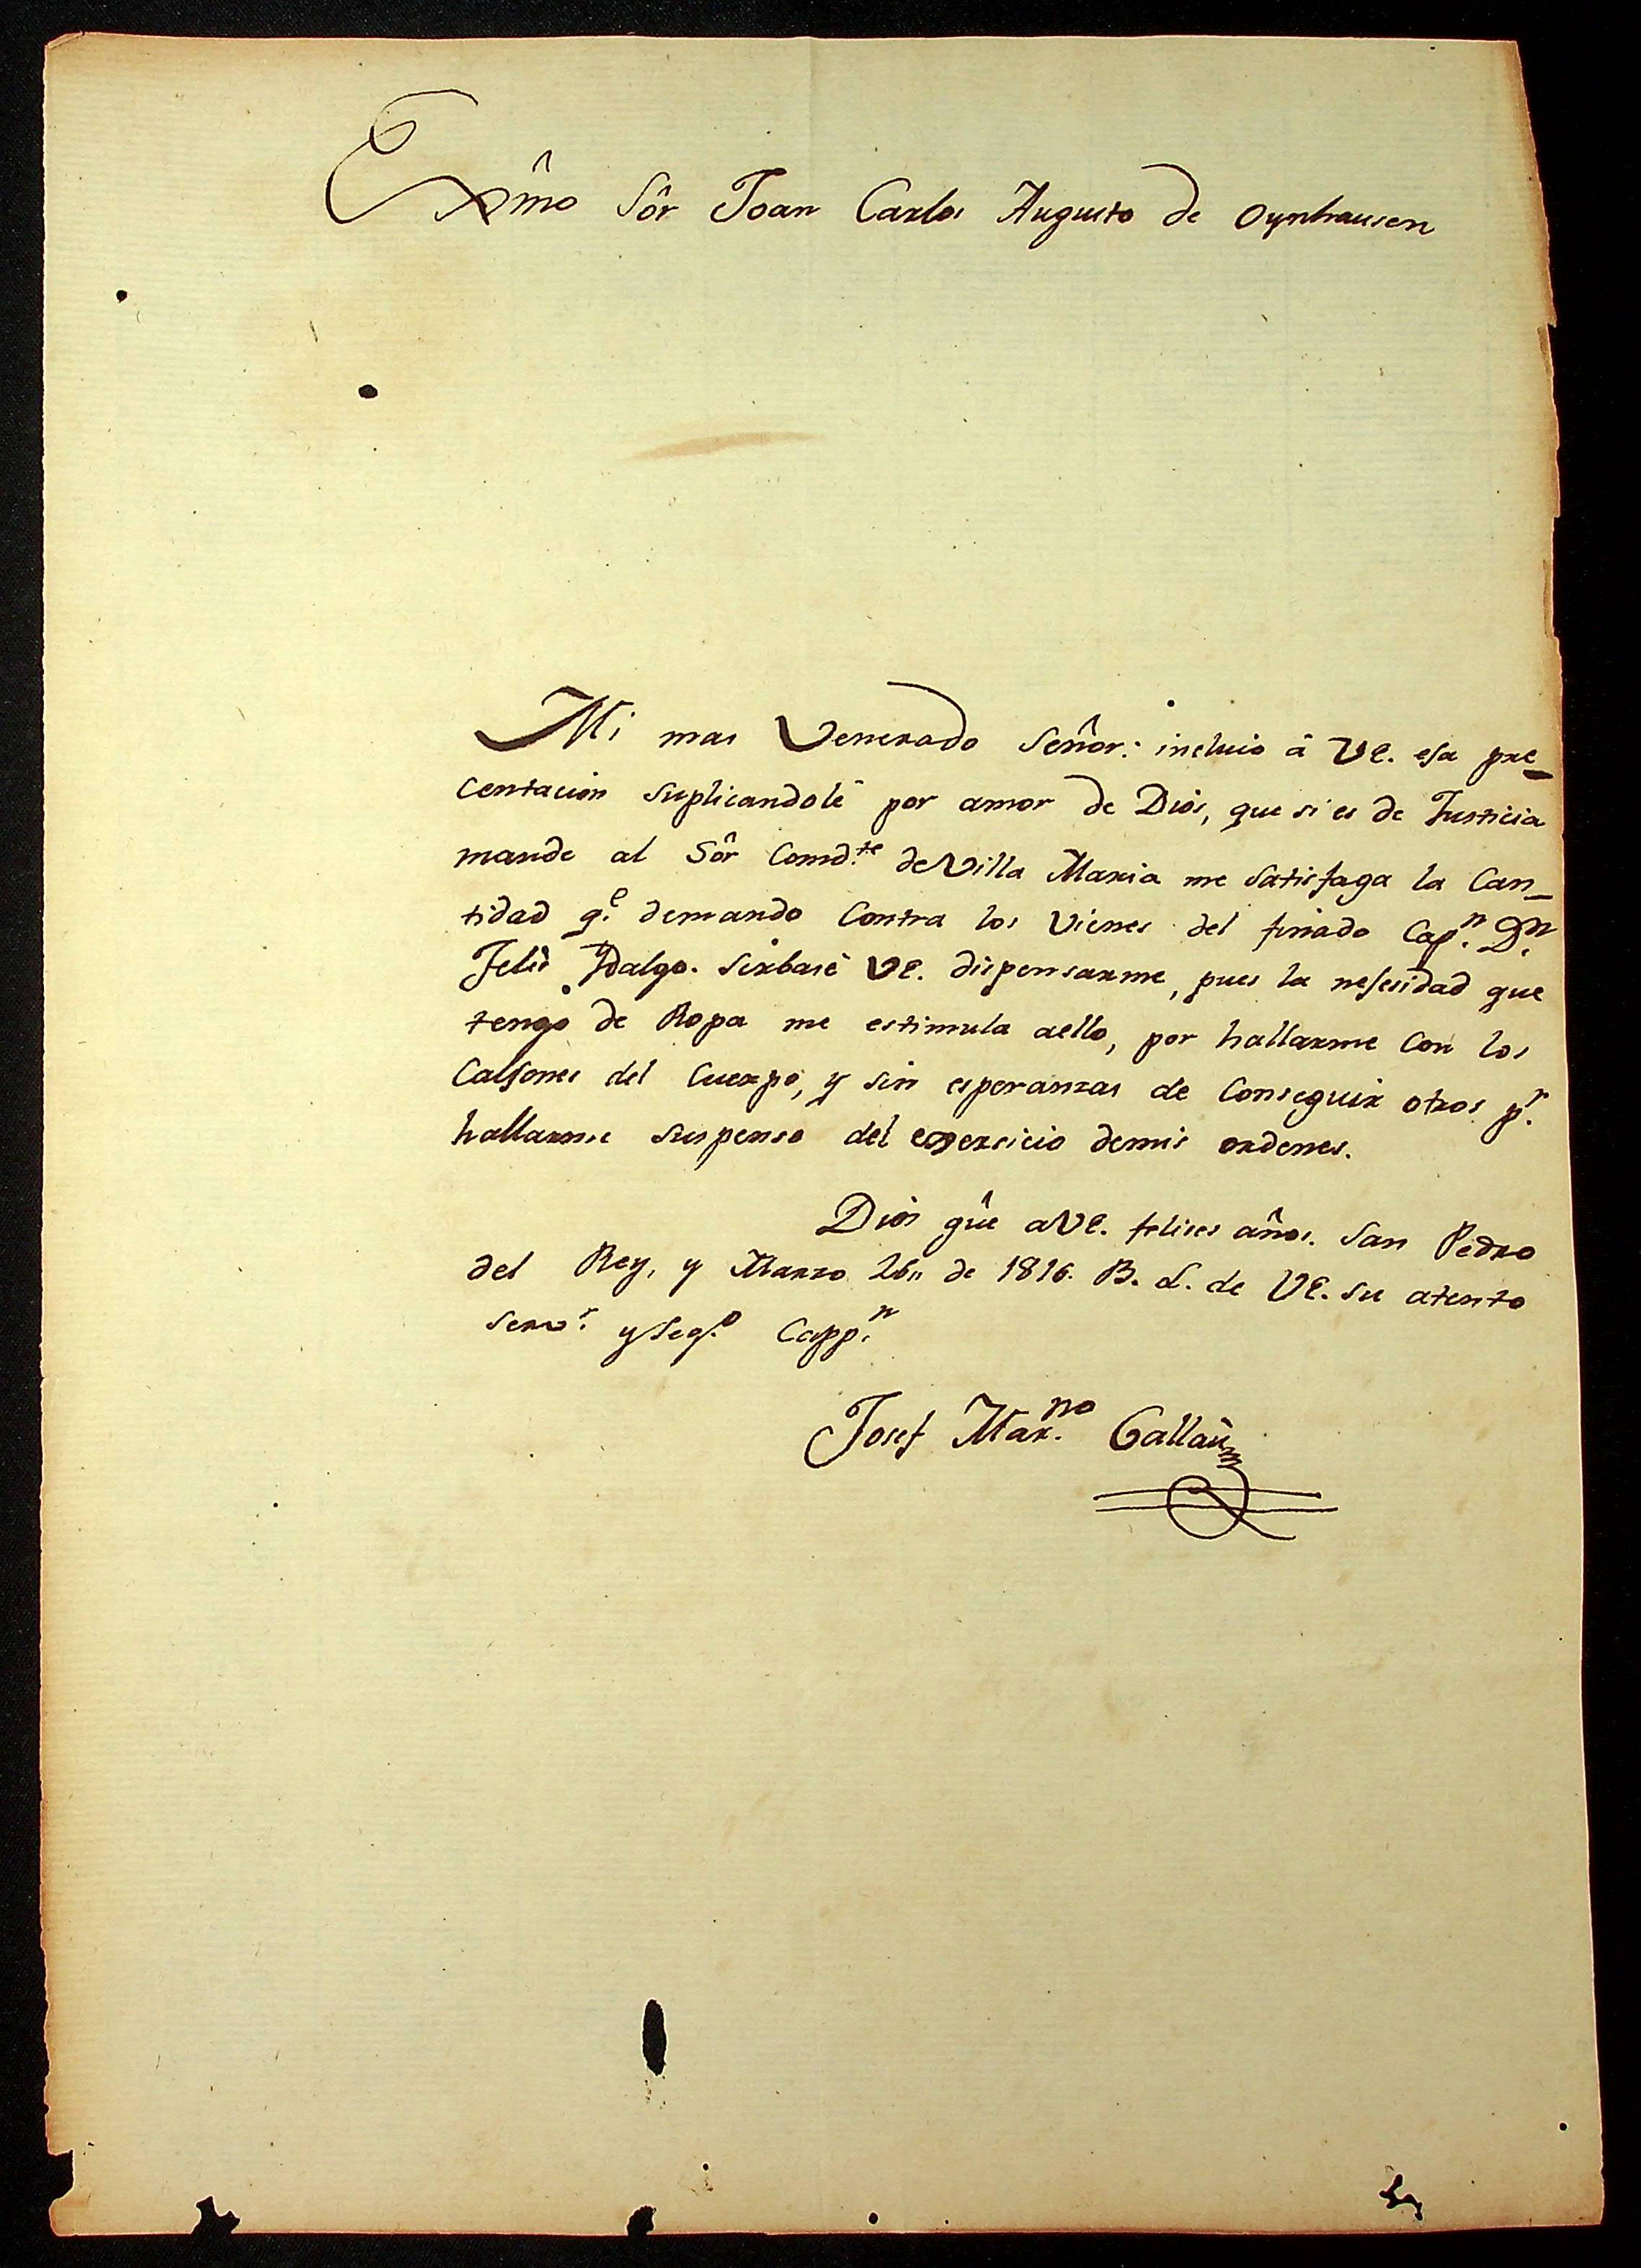 Exmô Sôr Joan Carlos Augusto de Oynhausen
Mi mas Venerado Señor: incluio â VE. esa pre_
centacion suplicandole por amor de Dios, que si es de Justicia
mande al Sôr Comd.te de Villa Maria me satisfaga la Can_
tidad q.e demando Contra los Vienes del finado Cap.n D.n
Felis Idalgo. Sirbase VE. dispensarme, pues la nesesidad que
tengo de Ropa me estimula aello, por hallarme Con los
Calsones del Cuerpo, y sin esperanzas de Conseguir otros p.r
hallarme suspenso del exersicio demis ordenes.
Dios gûe aVE. felises años. San Pedro
del Rey, y Marzo 26,, de 1816. B. L. de VE. su atento
Serv.r y Seg.o Capp.n
Josef Mar.no